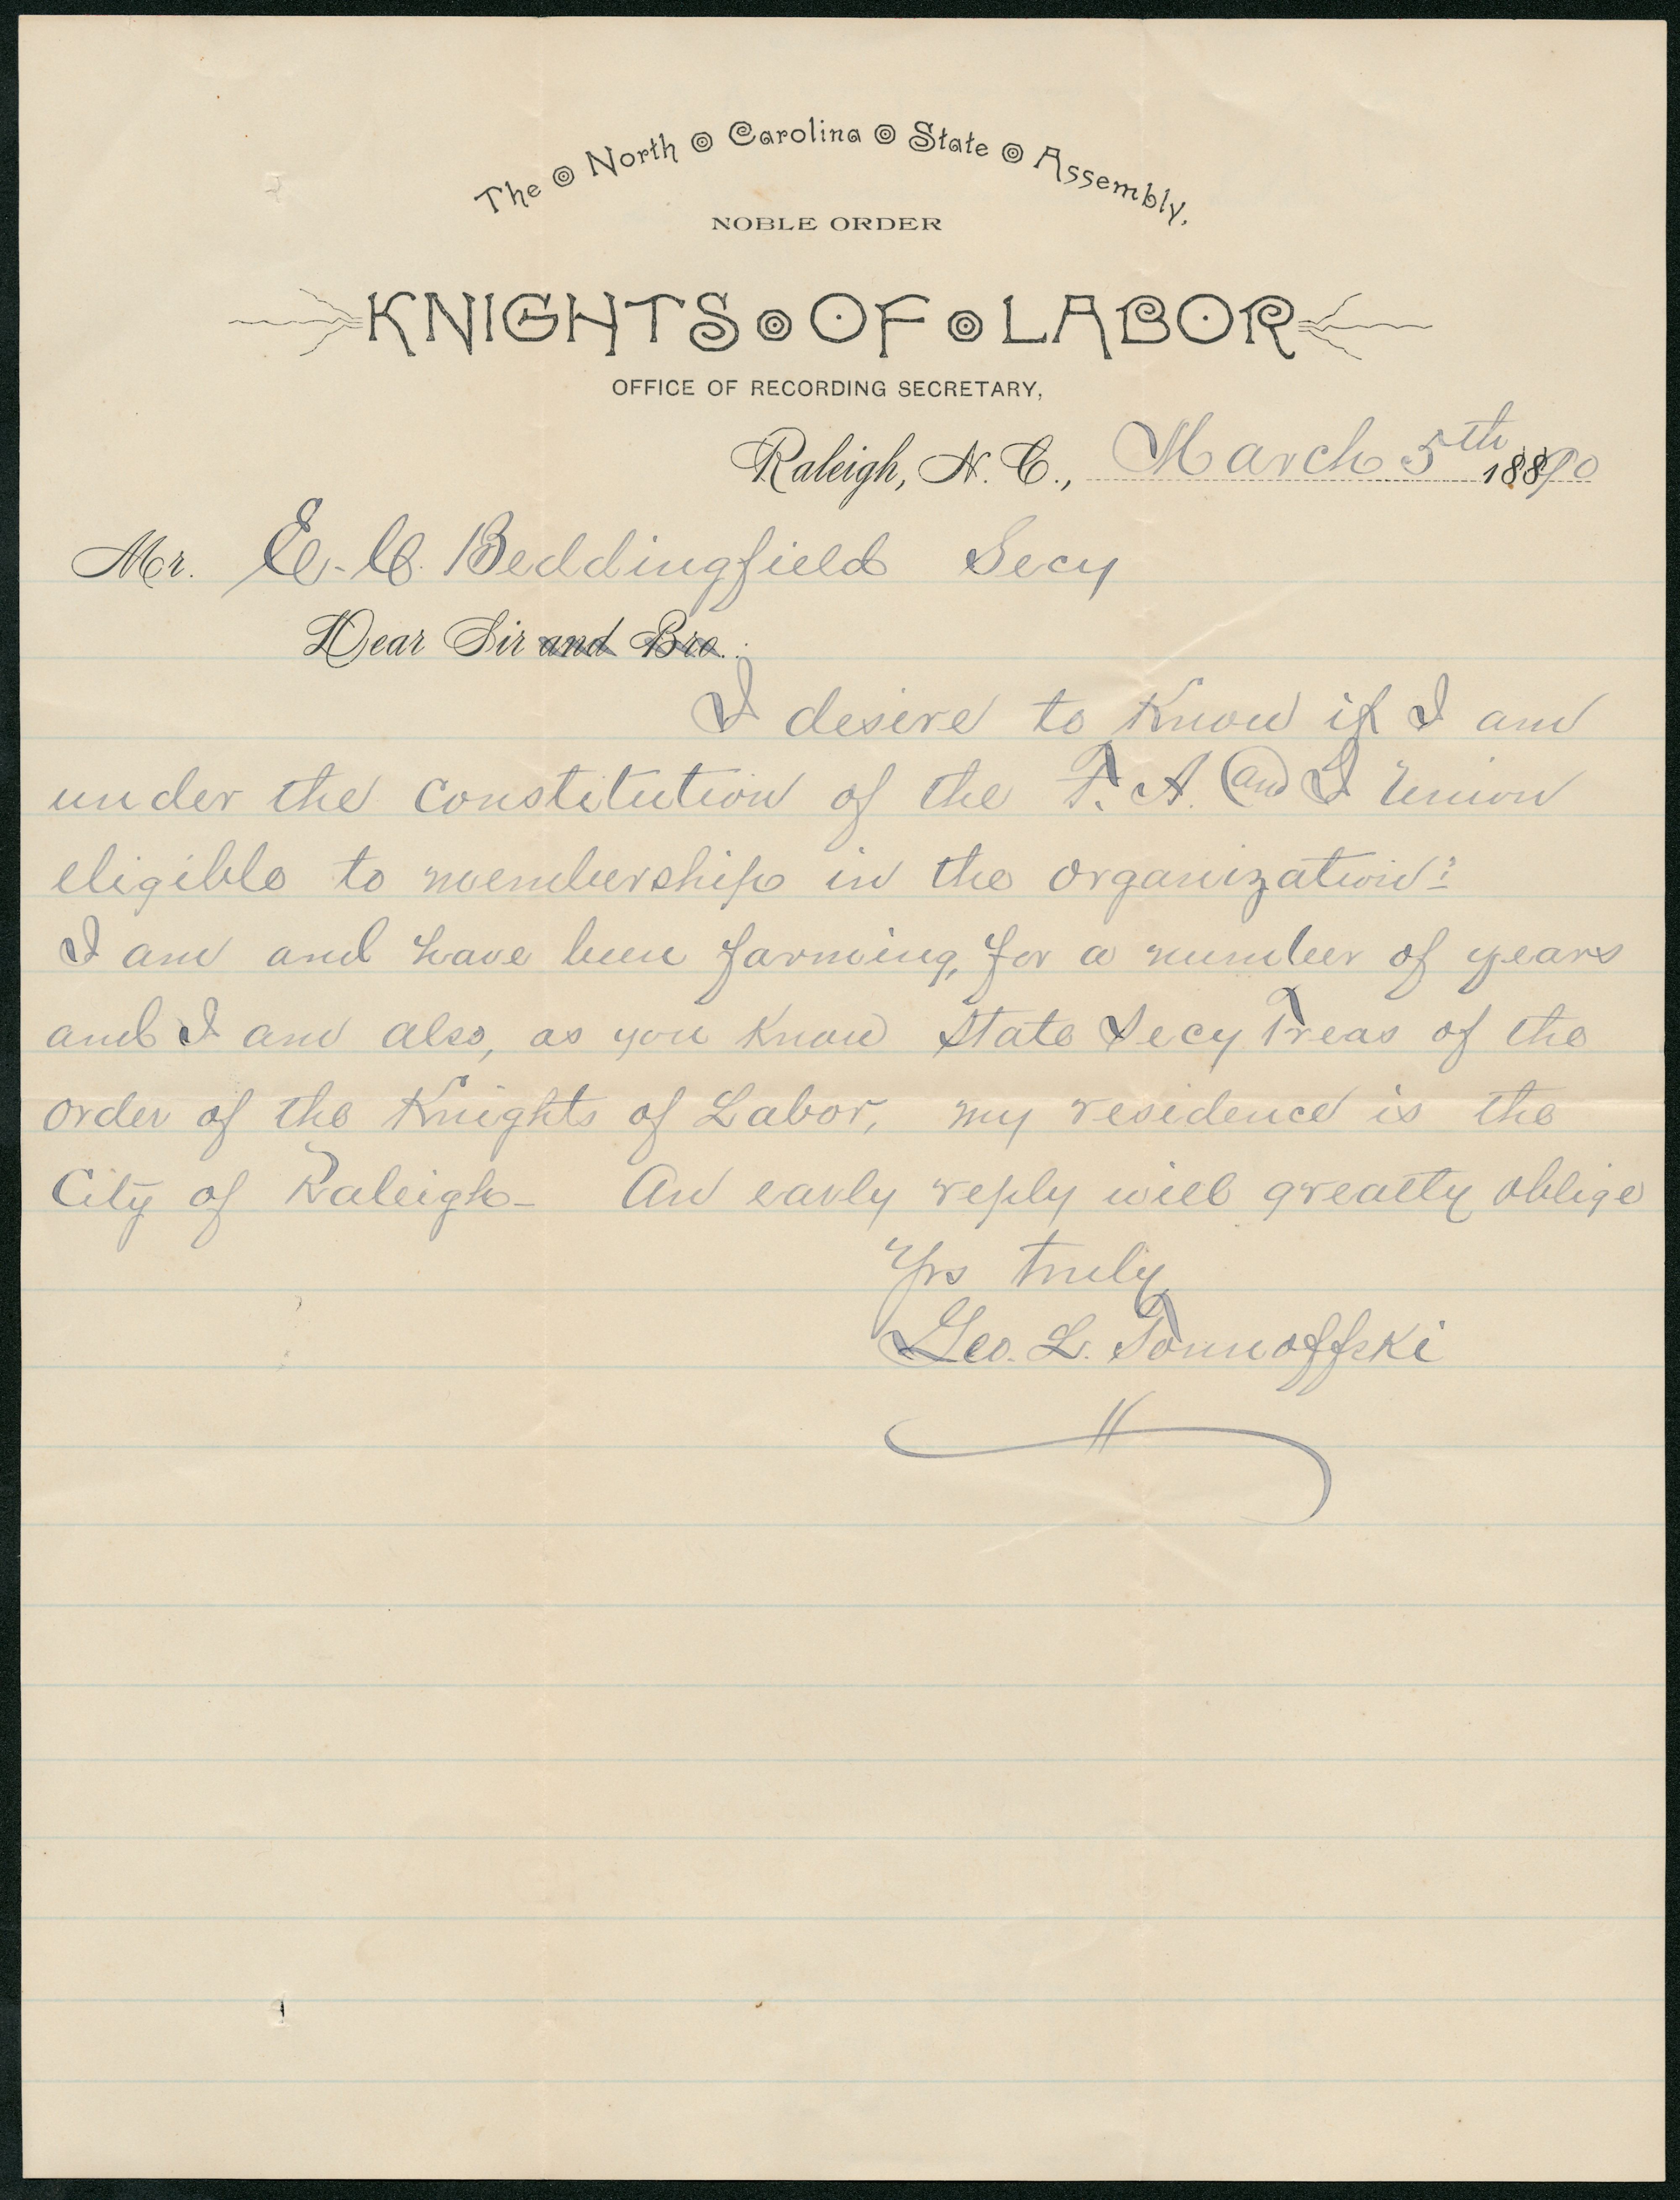 The North Carolina State Assembly,
NOBLE ORDER
KNIGHTS OF LABOR
OFFICE OF RECORDING SECRETARY,
Raleigh, N. C., March 5th 1890
Mr. E. C. Beddingfield Secy
Dear Sir and Bro.:
I desire to Know if I am
under the constitution of the F. A. and I Union
eligible to membership in the organization:
I am and have been farming, for a number of years
and I am also, as you Know State Secy Treas of the
order of the Knights of Labor, my residence is the
City of Raleigh - An early reply will greatly oblige
Yrs truly
Geo. L. Tonnoffski